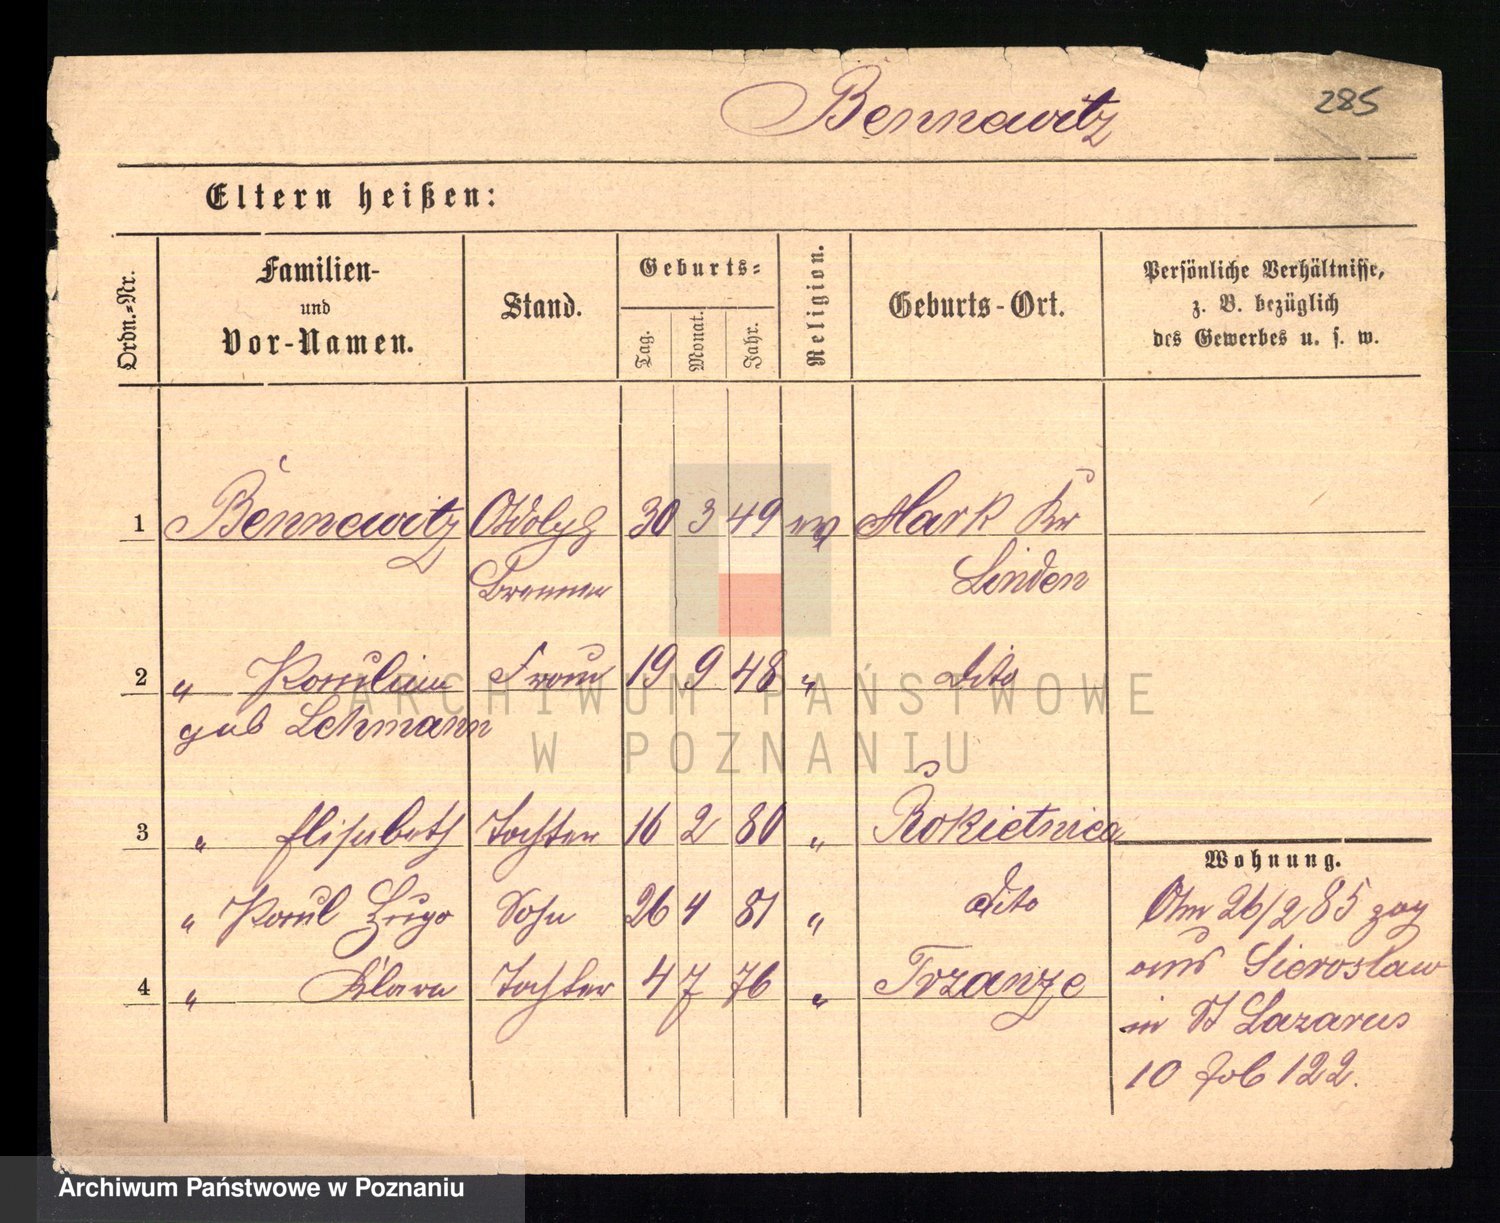 Bennewitz
285
Eltern heißen:
Ordn.-Nr.
Familien-
und
Vor-Namen.
Stand.
Geburts-
Tag.
Monat.
Jahr.
Religion.
Geburts-Ort.
Persönliche Verhältnisse,
z. B. bezüglich
des Gewerbes u. s. w.
1 Bennewitz Adolph 30 3 49 ev Mark
Brenner Linden
2 " Paulina Frau 19 9 48 " dito
geb Lehmann
3 " Elisabeth Tochter 16 2 80 " Rokietnica
" Paul Hugo Sohn 26 4 81 " dito
4 " Klara Tochter 4 7 76 " Trzanze
Wohnung.
Am 26/2 85 zog
aus Sieroslaw
in St Lazarus
10 122.
ARCHIWUM PAŃSTWOWE
W POZNANIU
Archiwum Państwowe w Poznaniu